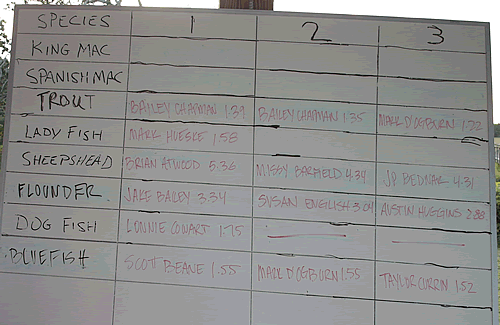 SPECIES 1 2 3
KING MAC
SPANISH MAC
TROUT BAILEY CHAPMAN 1.39 BAILEY CHAPMAN 1.35 MARK D'OGBURN 1.22
LADY FISH MARK HUESKE 1.58
SHEEPSHEAD BRIAN ATWOOD 5.36 MISSY BARFIELD 4.34 JP BEDNAR 4.31
FLOUNDER JAKE BAILEY 3.34 SUSAN ENGLISH 3.04 AUSTIN HUGGINS 2.88
DOG FISH LONNIE COWART 1.75
BLUEFISH SCOTT BEANE 1.55 MARK D'OGBURN 1.55 TAYLOR CURRIN 1.52